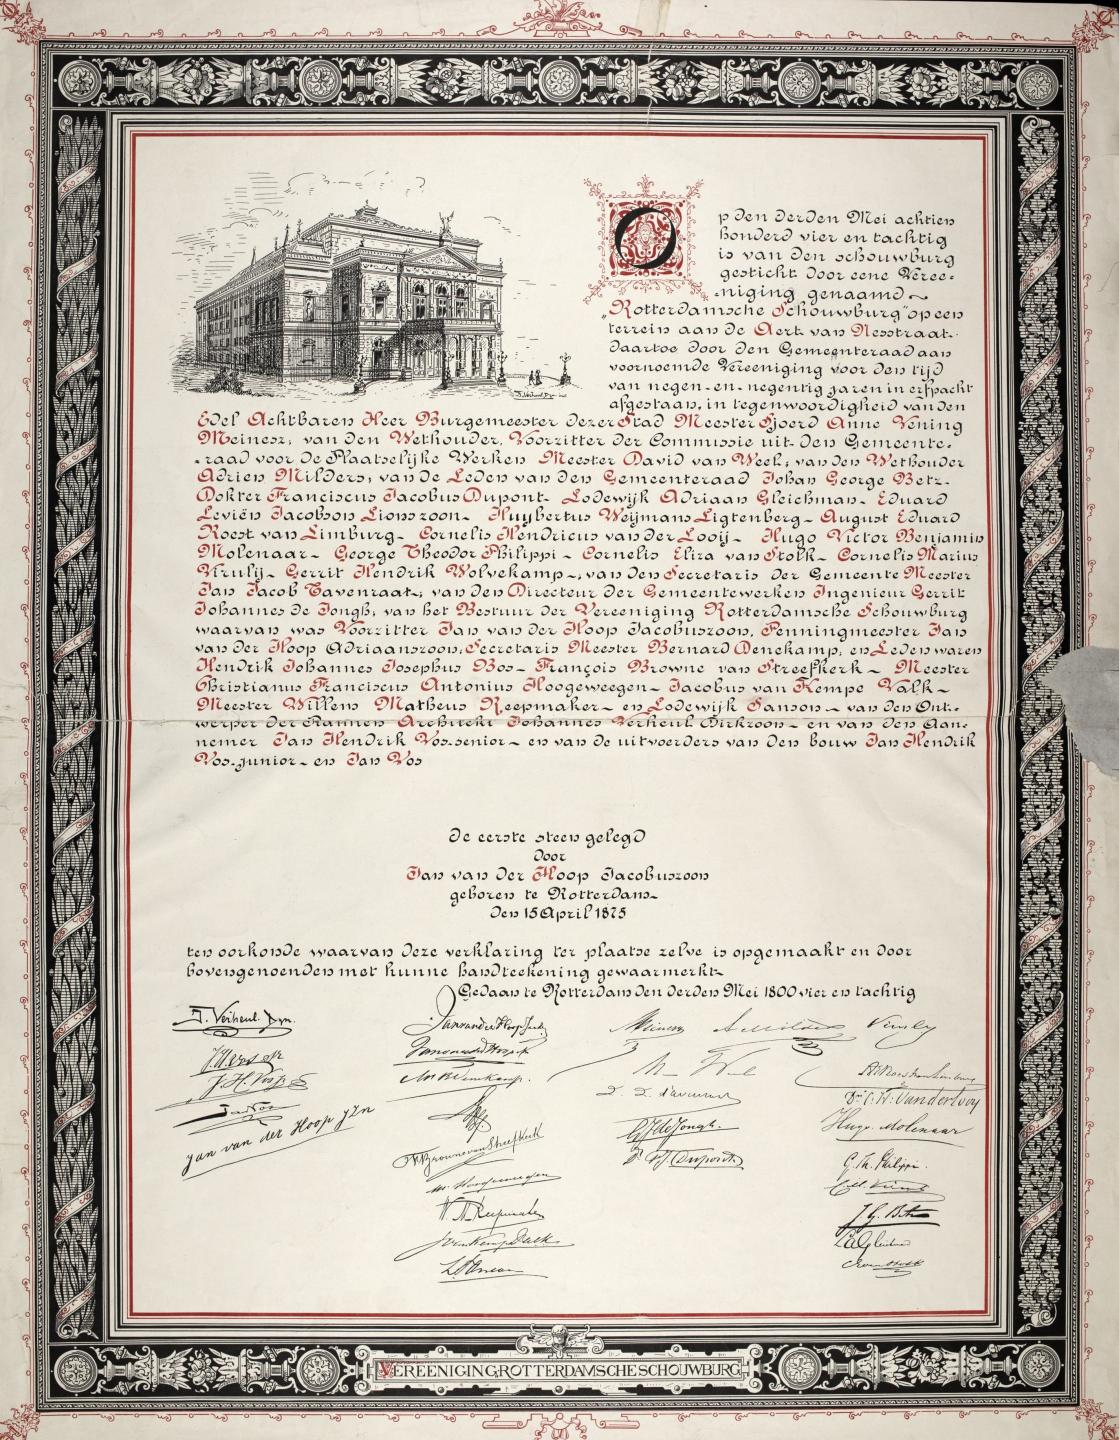 Op den derden Mei achtien
honderd vier en tachtig
is van den schouwburg
gesticht door eene Veree-
niging genaamd
„Rotterdamsche Schouwburg" op een
terrein aan de Aert van Nesstraat.
daartoe door den Gemeenteraad aan
voornoemde Vereeniging voor den tijd
van negen-en-negentig jaren in erfpacht
afgestaan, in tegenwoordigheid van den
Edel Achtbaren Heer Burgemeester dezer Stad Meester Sjoerd Anne Vening
Meinesz, van den Wethouder, Voorzitter der Commissie uit den Gemeente-
raad voor de Plaatselijke Werken Meester David van Week, van den Wethouder
Adrien Milders, van de Leden van den Gemeenteraad Johan George Betz-
Dokter Franciscus Jacobus Dupont- Lodewijk Adriaan Gleichman- Eduard
Leviën Jacobson Lionszoon- Huybertus Weijmans Ligtenberg- August Eduard
Roest van Limburg- Cornelis Hendricus van der Looij- Hugo Victor Benjamin
Molenaar- George Theodor Philippi- Cornelis Eliza van Stolk- Cornelis Marius
Viruly- Gerrit Hendrik Wolvekamp-, van den Secretaris der Gemeente Meester
Jan Jacob Tavenraat, van den Directeur der Gemeentewerken Ingenieur Gerrit
Johannes de Jongh, van het Bestuur der Vereeniging Rotterdamsche Schouwburg
waarvan was Voorzitter Jan van der Hoop Jacobuszoon, Penningmeester Jan
van der Hoop Adriaanszoon, Secretaris Meester Bernard Denekamp, en Leden waren
Hendrik Johannes Josephus Bos- François Browne van Streefkerk- Meester
Christianus Franciscus Antonius Hoogeweegen- Jacobus van Kempe Valk-
Meester Willem Matheus Reepmaker- en Lodewijk Sanson- van den Ont-
werper der Plannen Architekt Johannes Verheul Dirkzoon- en van den Aan-
nemer Jan Hendrik Vos-senior- en van de uitvoerders van den bouw Jan Hendrik
Vos-junior- en Jan Vos
J. Verheul Dzn
De eerste steen gelegd
door
Jan van der Hoop Jacobuszoon
geboren te Rotterdam-
den 15 April 1875
ten oorkonde waarvan deze verklaring ter plaatse zelve is opgemaakt en door
bovengenoemden met hunne handteekening gewaarmerkt-
Gedaan te Rotterdam den derden Mei 1800 vier en tachtig
J. Verheul Dzn.
J. H. Vos Jr
Jan Vos
Jan van der Hoop JZn
Jan van der Hoop Jacbz
Jan van der Hoop Az
Mr B Denekamp.
F. Browne van Streefkerk
Mr. Hoogeweegen
W. M. Reepmaker
J van Kempe Valk
L. Sanson
Meinesz A. Milders Viruly
G J de Jongh.
Dr F J Dupont
A E Roest van Limburg
Dr. C. H. Van der Looy
Hugo Molenaar
G. Th. Philippi.
J. G. Betz
L A Gleichman
C E van Stolk
VEREENIGING ROTTERDAMSCHE SCHOUWBURG